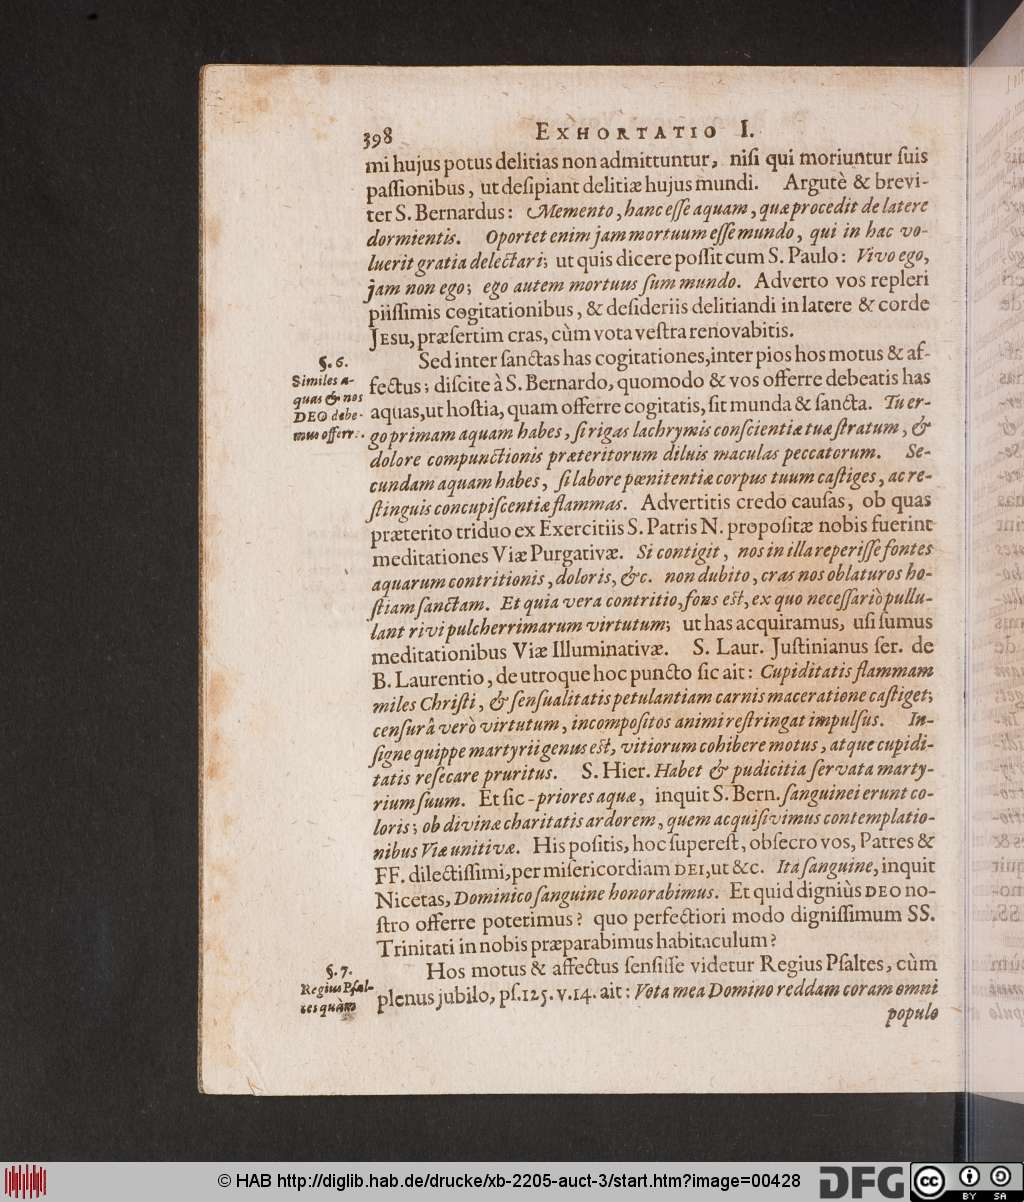 398 EXHORTATIO I.
mi hujus potus delitias non admittuntur, nisi qui moriuntur suis
passionibus, ut desipiant delitiæ hujus mundi. Argutè & brevi-
ter S. Bernardus: Memento, hanc esse aquam, quæ procedit de latere
dormientis. Oportet enim jam mortuum esse mundo, qui in hac vo-
luerit gratia delectari; ut quis dicere possit cum S. Paulo: Vivo ego,
jam non ego; ego autem mortuus sum mundo. Adverto vos repleri
piissimis cogitationibus, & desideriis delitiandi in latere & corde
JESU, præsertim cras, cùm vota vestra renovabitis.
§. 6.
Similes a-
quas & nos
DEO debe-
mus offerr.
Sed inter sanctas has cogitationes, inter pios hos motus & af-
fectus; discite à S. Bernardo, quomodo & vos offerre debeatis has
aquas, ut hostia, quam offerre cogitatis, sit munda & sancta. Tu er-
go primam aquam habes, si rigas lachrymis conscientiæ tuæ stratum, &
dolore compunctionis præteritorum diluis maculas peccatorum. Se-
cundam aquam habes, si labore pœnitentiæ corpus tuum castiges, ac re-
stinguis concupiscentiæ flammas. Advertitis credo causas, ob quas
præterito triduo ex Exercitiis S. Patris N. propositæ nobis fuerint
meditationes Viæ Purgativæ. Si contigit, nos in illa reperisse fontes
aquarum contritionis, doloris, &c. non dubito, cras nos oblaturos ho-
stiam sanctam. Et quia vera contritio, fons est, ex quo necessariò pullu-
lant rivi pulcherrimarum virtutum; ut has acquiramus, usi sumus
meditationibus Viæ Illuminativæ. S. Laur. Justinianus ser. de
B. Laurentio, de utroque hoc puncto sic ait: Cupiditatis flammam
miles Christi, & sensualitatis petulantiam carnis maceratione castiget;
censurâ verò virtutum, incompositos animi restringat impulsus. In-
signe quippe martyrii genus est, vitiorum cohibere motus, atque cupidi-
tatis resecare pruritus. S. Hier. Habet & pudicitia servata marty-
rium suum. Et sic - priores aquæ, inquit S. Bern. sanguinei erunt co-
loris; ob divinæ charitatis ardorem, quem acquisivimus contemplatio-
nibus Viæ unitivæ. His positis, hoc superest, obsecro vos, Patres &
FF. dilectissimi, per misericordiam DEI, ut &c. Ita sanguine, inquit
Nicetas, Dominico sanguine honorabimus. Et quid digniùs DEO no-
stro offerre poterimus? quo perfectiori modo dignissimum SS.
Trinitati in nobis præparabimus habitaculum?
§. 7.
Regius Psal-
tes quàm
Hos motus & affectus sensisse videtur Regius Psaltes, cùm
plenus jubilo, ps. 125. v. 14. ait: Vota mea Domino reddam coram omni
populo
© HAB http://diglib.hab.de/drucke/xb-2205-auct-3/start.htm?image=00428
DFG
cc BY SA